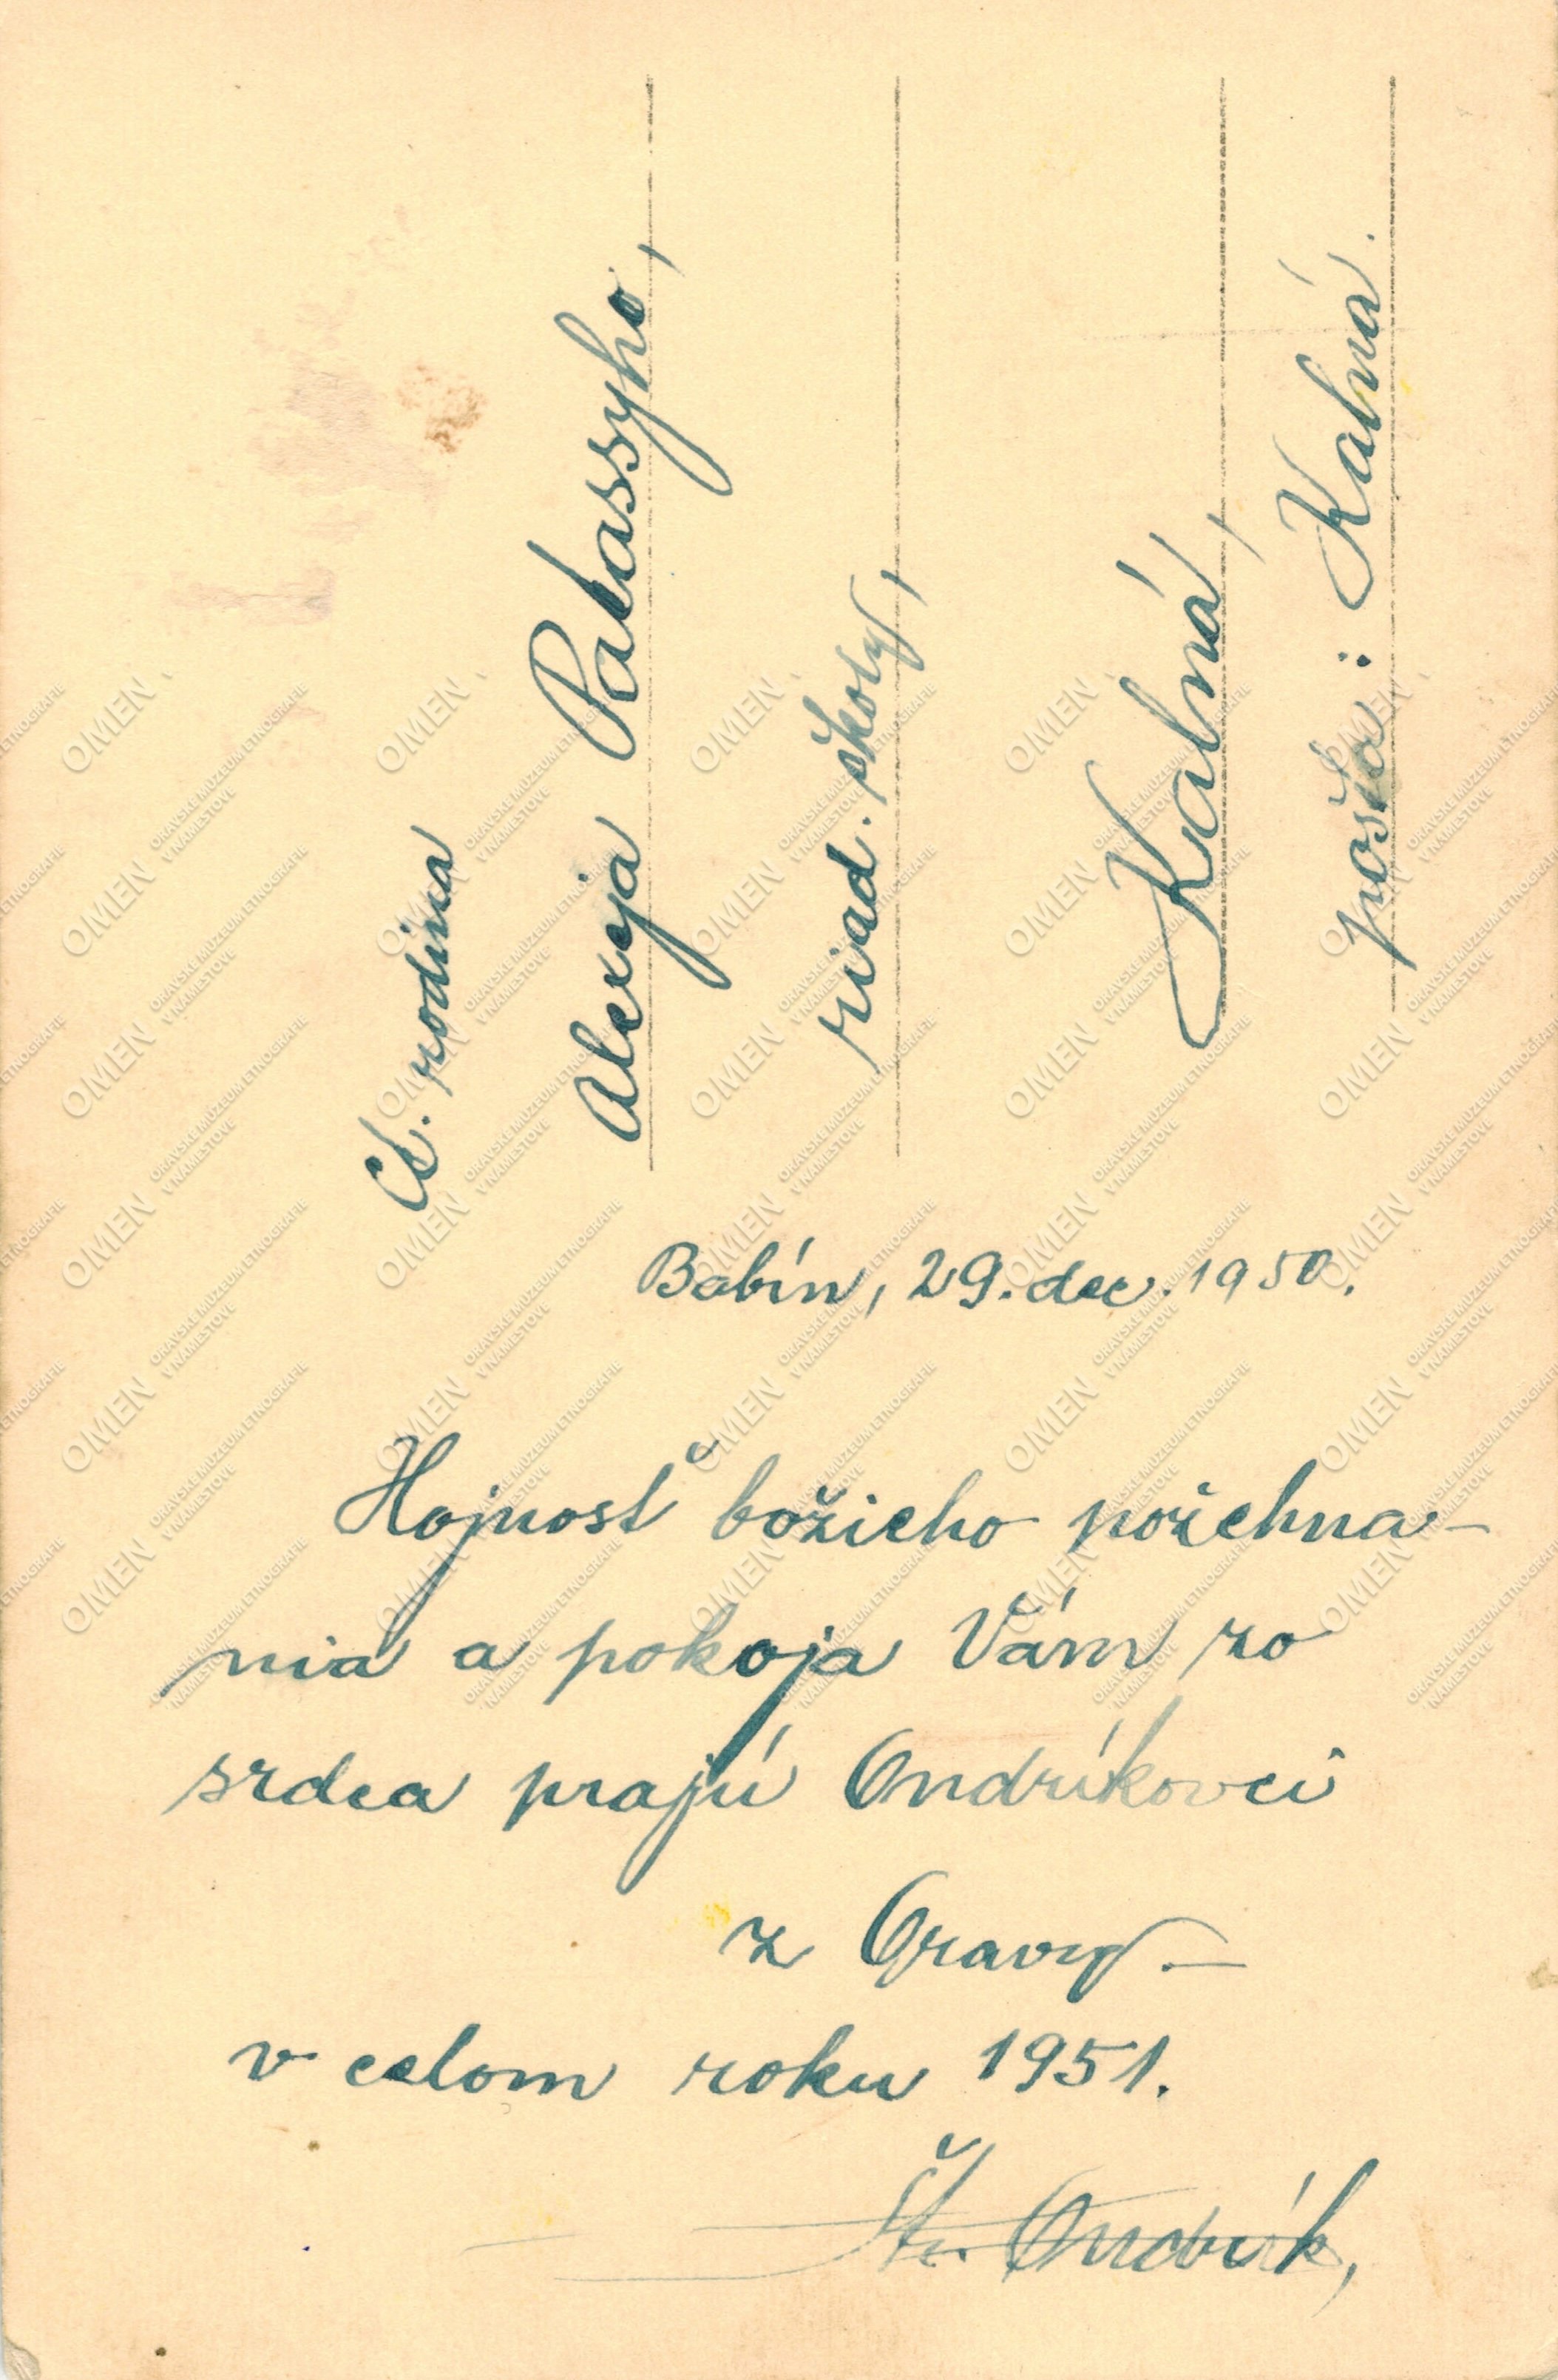 Ct. rodina
Alexeja Pakassyho,
riad. školy,
Kalná,
pošta: Kalná.
Babín, 29. dec. 1950.
Hojnosť božieho požehna-
nia a pokoja Vám zo
srdca prajú Ondríkovci
z Oravy. —
v celom roku 1951.
Št. Ondrík,
OMEN
ORAVSKÉ MÚZEUM ETNOGRAFIE
V NÁMESTOVE